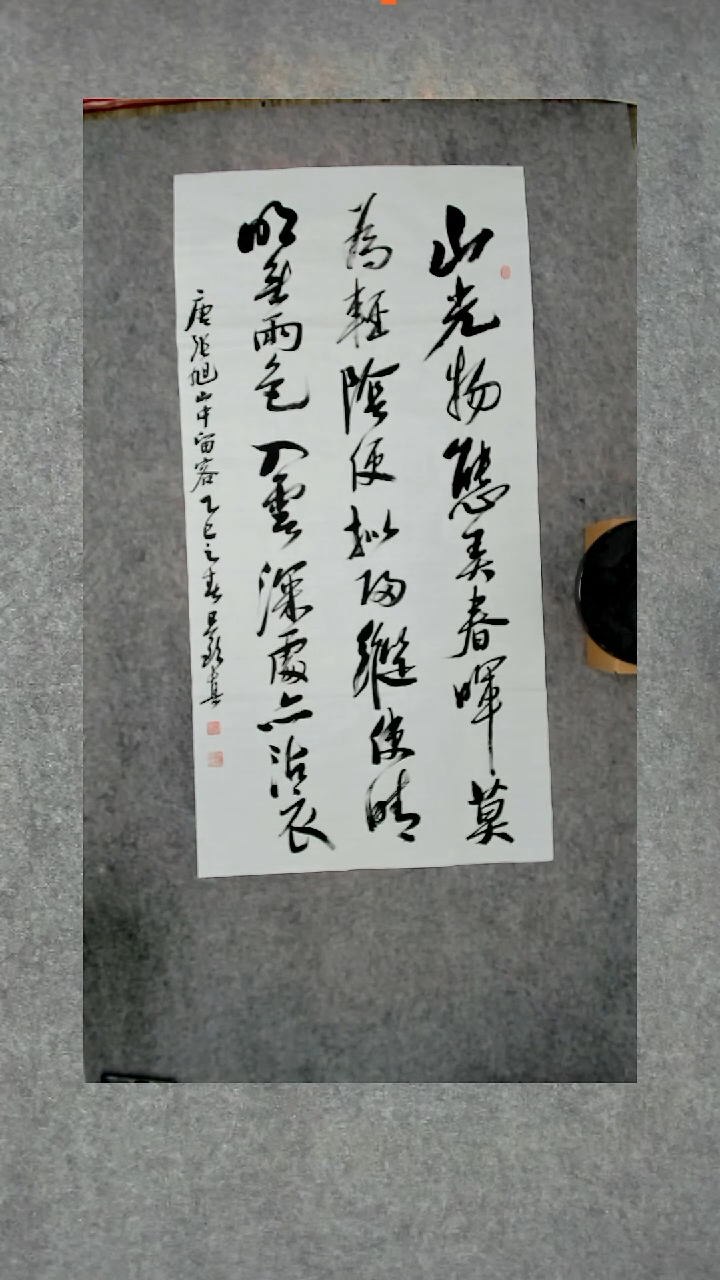 山光物態弄春暉莫
為輕陰便擬歸縱使晴
明無雨色入雲深處亦沾衣
唐張旭山中留客乙巳之春